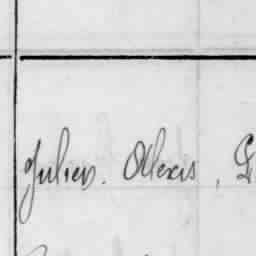 Julien. Alexis,